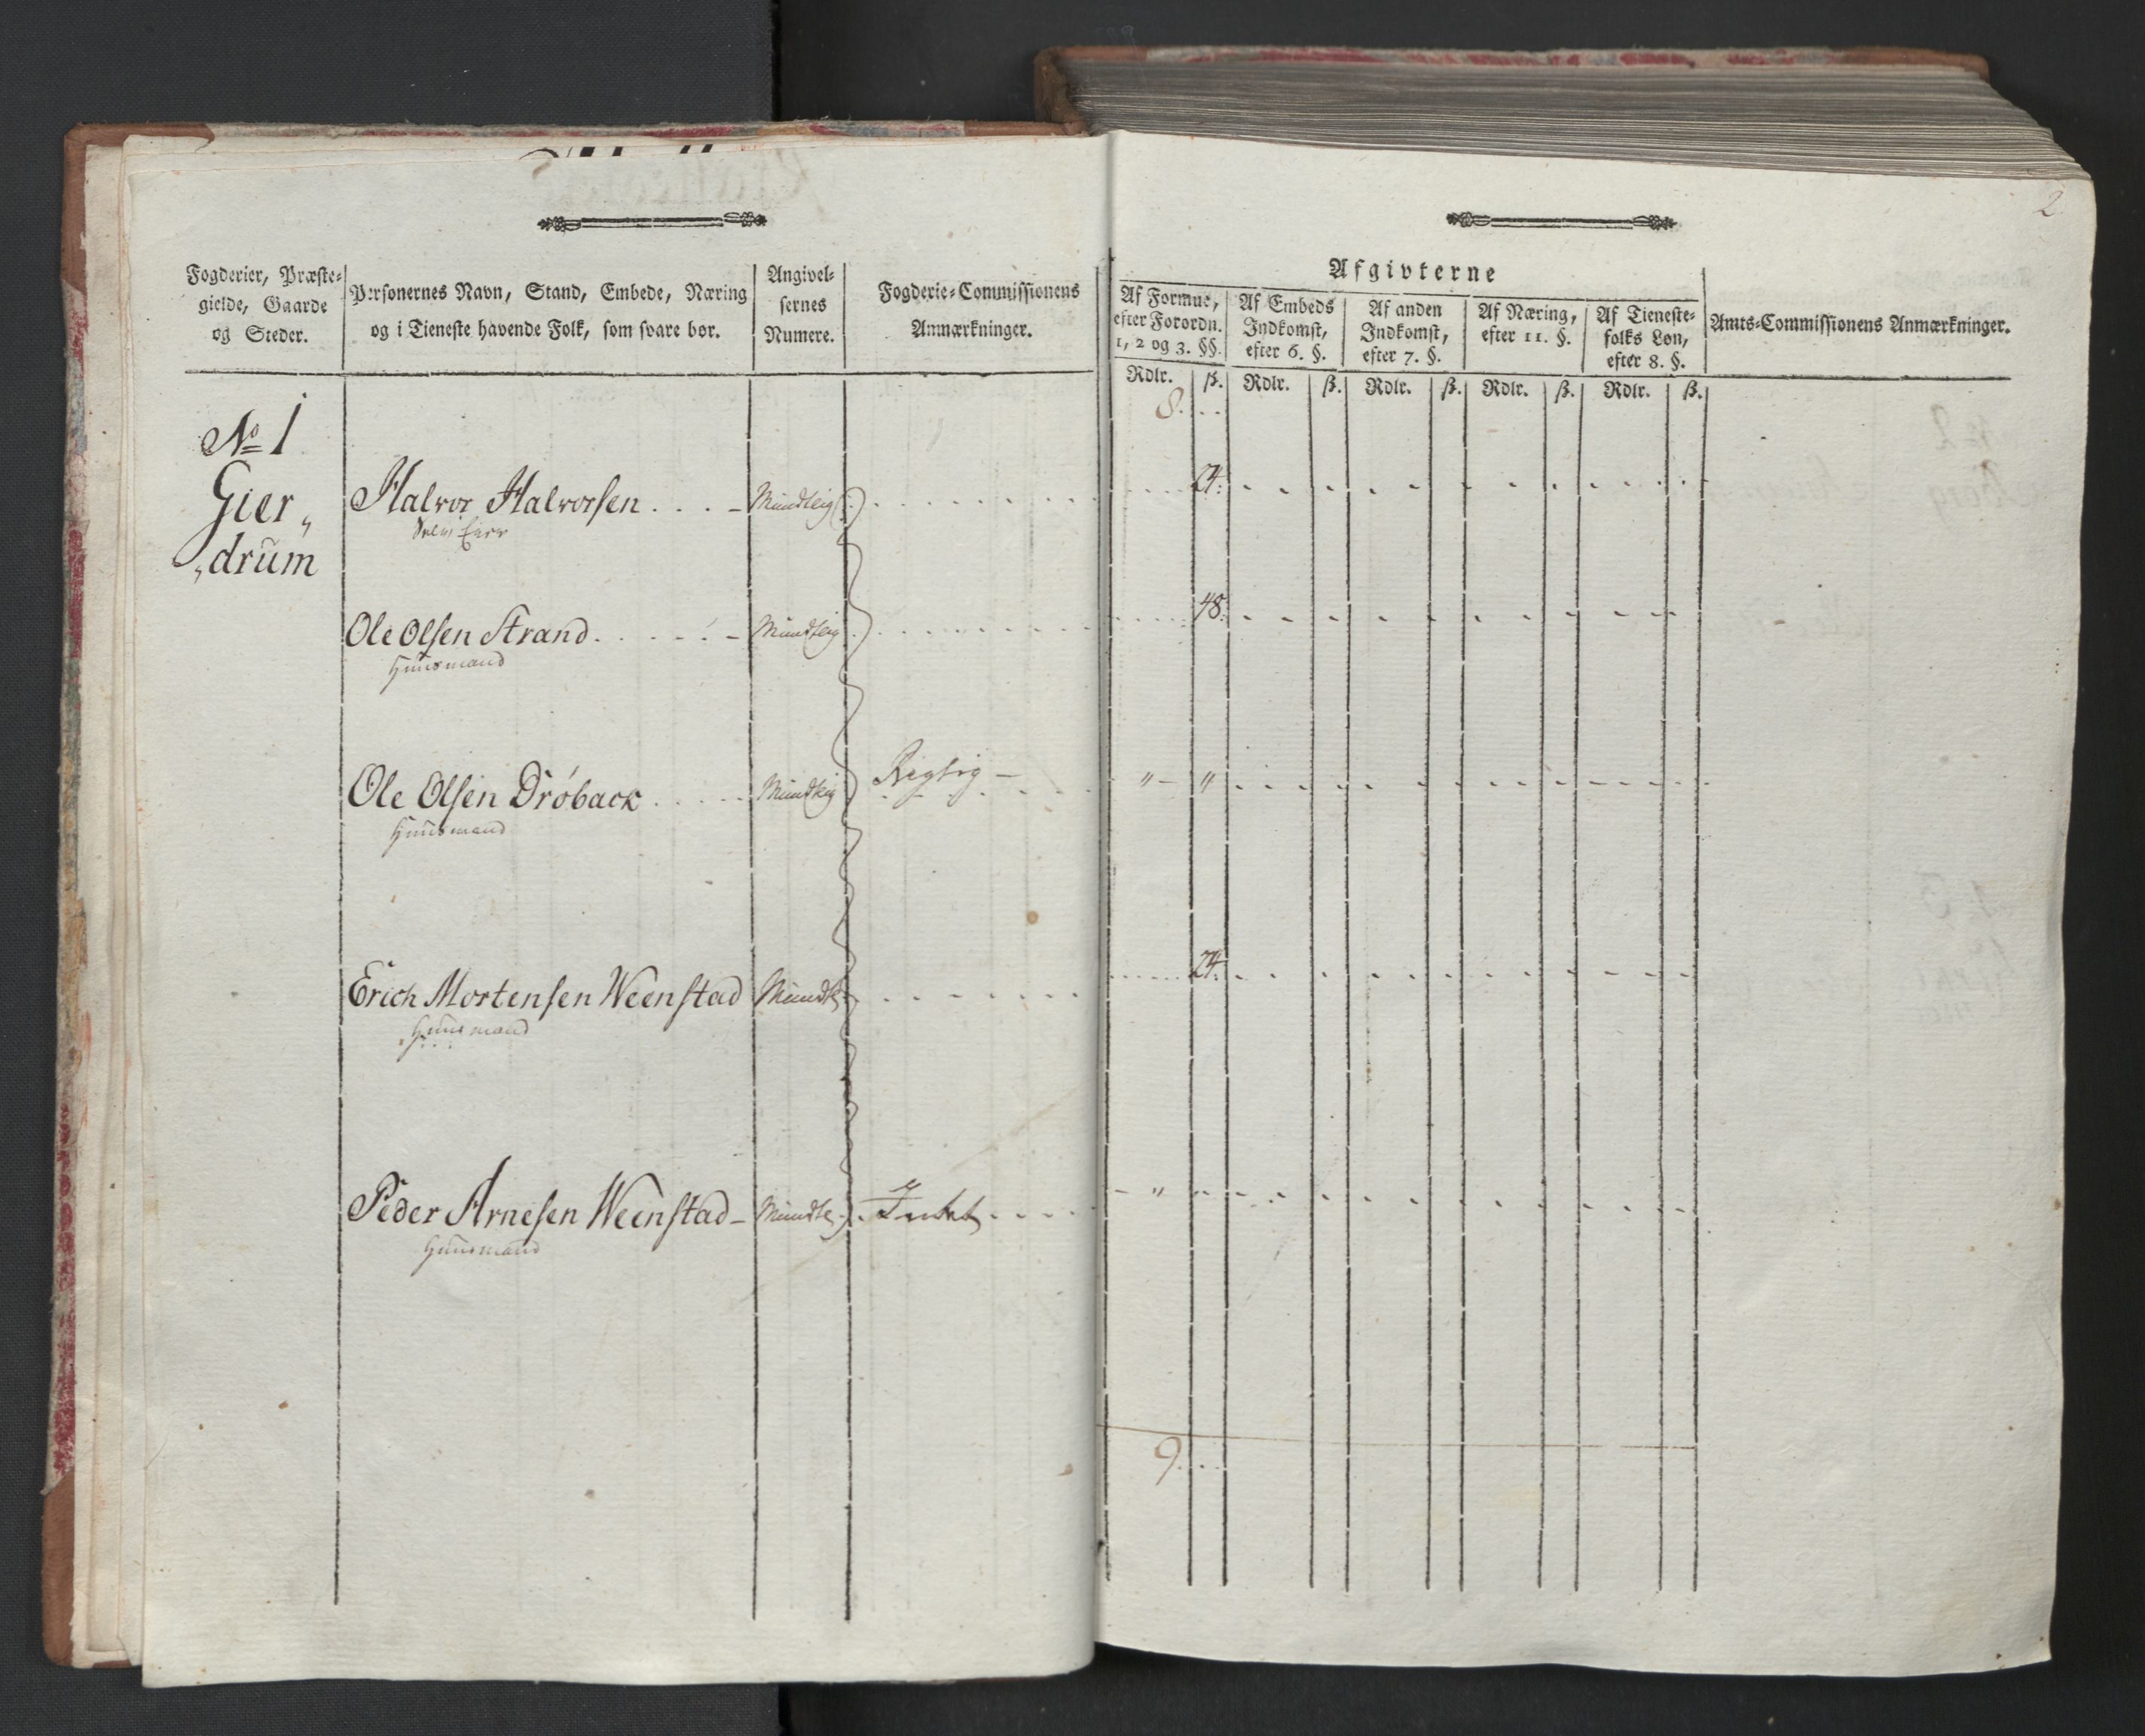 2
Fogderier, Præste-
gielde, Gaarde
og Steder.
Personernes Navn, Stand, Embede, Næring
og i Tieneste havende Folk, som svare bør.
Angivel-
sernes
Numere.
Fogderie-Commissionens
Anmærkninger.
Afgivterne
Af Formue,
efter Forordn.
1, 2 og 3. §§.
Af Embeds
Indkomst,
efter 6. §.
Af anden
Indkomst,
efter 7. §.
Af Næring,
efter 11. §.
Af Tieneste-
folks Løn,
efter 8. §.
Amts-Commissionens Anmærkninger.
Rdlr. ß. Rdlr. ß. Rdlr. ß. Rdlr. ß. Rdlr. ß.
8. . . .
No 1
Gier„
„drum
Halvor Halvorsen . . . – Mundtlig . . . . . . . . 24.
Selv Eier
Ole Olsen Strand . . . . . – Mundtlig . . . . . . . . 48.
Huusmand
Ole Olsen Drøback . . . . . Mundtlig Rigtig – „ – „
Huusmand
Erich Mortensen Weenstad Mundtl. . . . . . . . 24.
Huusmand
Peder Arnesen Weenstad – Mundtl. Intet . . . . – „ –
Huusmand
9. . . .